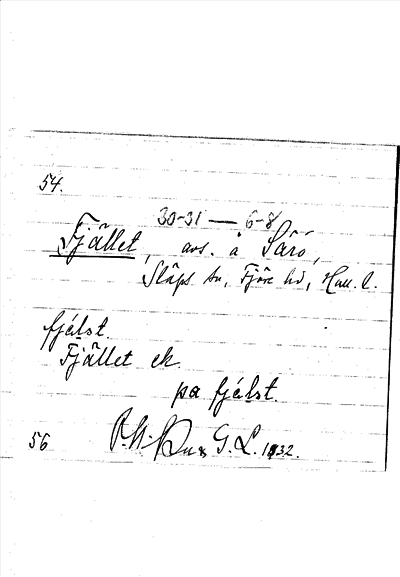 54.
30-31 — 6-8
Fjället, avs. å Särö,
Släps sn, Fjäre hd, Hall. l.
fjälst.
Fjället ek.
på fjälst.
G. L. 1932.
56